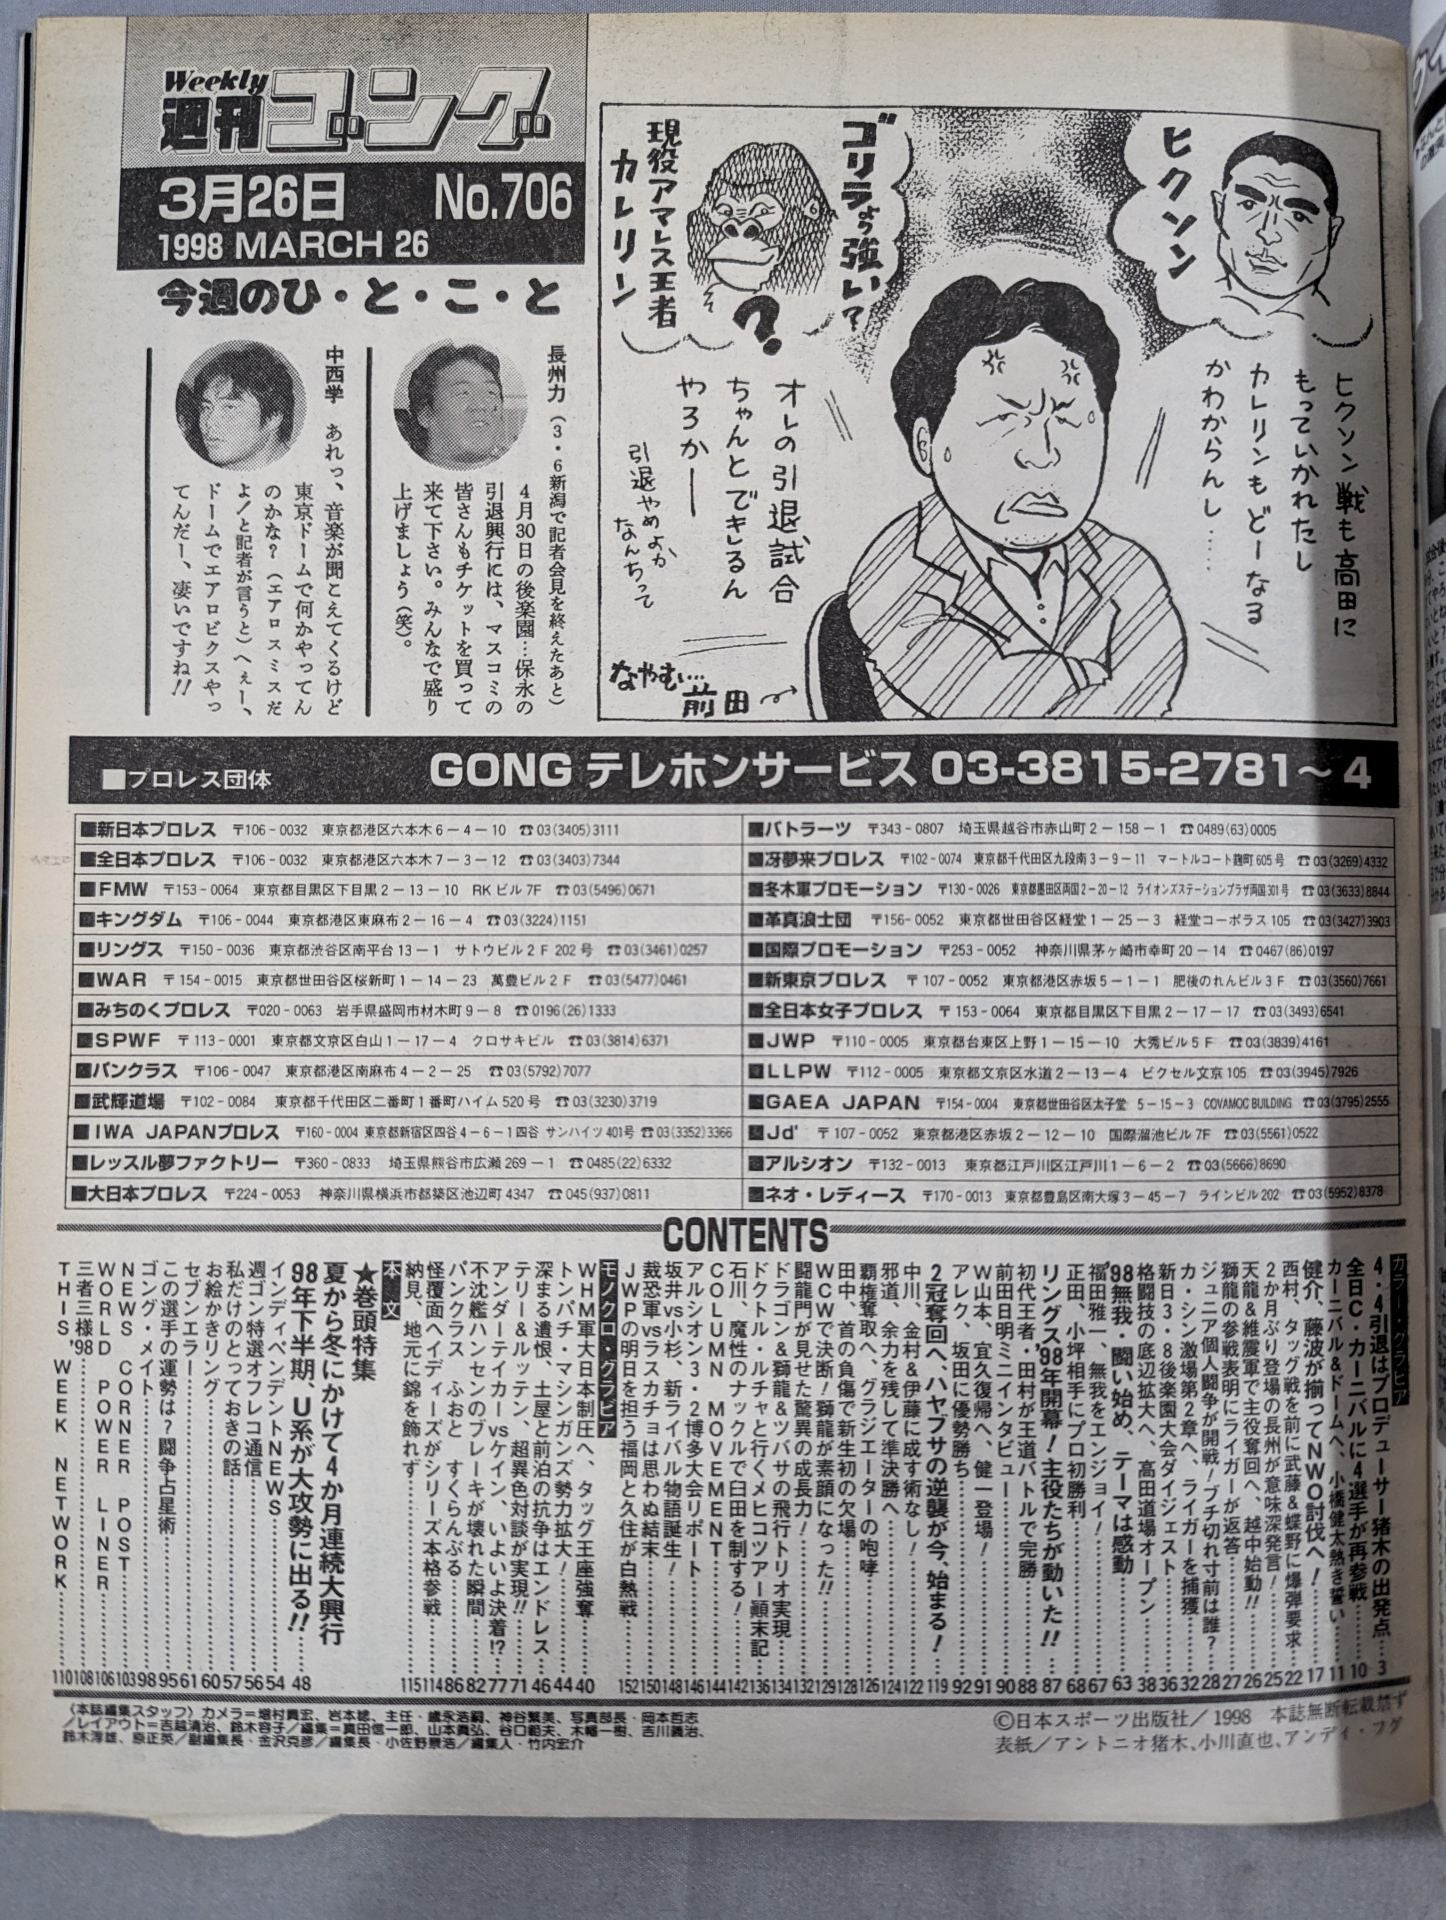 Weekly
週刊ゴング
3月26日 No.706
1998 MARCH 26
今週のひ・と・こ・と
長州力（3・6新潟で記者会見を終えたあと）
4月30日の後楽園…保永の
引退興行には、マスコミの
皆さんもチケットを買って
来て下さい。みんなで盛り
上げましょう（笑）。
中西学 あれっ、音楽が聞こえてくるけど
東京ドームで何かやってん
のかな？（エアロスミスだ
よ！と記者が言うと）へぇー、
ドームでエアロビクスやっ
てんだー、凄いですね!!
ヒクソン
ゴリラより強い？
現役アマレス王者
カレリン
？
ヒクソン戦も高田に
もっていかれたし
カレリンもどーなる
かわからんし……
オレの引退試合
ちゃんとできるん
やろか——
引退やめよか
なんちって
なやむ…
前田
■プロレス団体 GONG テレホンサービス 03-3815-2781〜4
■新日本プロレス 〒106-0032 東京都港区六本木6-4-10 ☎03(3405)3111
■全日本プロレス 〒106-0032 東京都港区六本木7-3-12 ☎03(3403)7344
■FMW 〒153-0064 東京都目黒区下目黒2-13-10 RKビル7F ☎03(5496)0671
■キングダム 〒106-0044 東京都港区東麻布2-16-4 ☎03(3224)1151
■リングス 〒150-0036 東京都渋谷区南平台13-1 サトウビル2F 202号 ☎03(3461)0257
■WAR 〒154-0015 東京都世田谷区桜新町1-14-23 萬豊ビル2F ☎03(5477)0461
■みちのくプロレス 〒020-0063 岩手県盛岡市材木町9-8 ☎0196(26)1333
■SPWF 〒113-0001 東京都文京区白山1-17-4 クロサキビル ☎03(3814)6371
■パンクラス 〒106-0047 東京都港区南麻布4-2-25 ☎03(5792)7077
■武輝道場 〒102-0084 東京都千代田区二番町1番町ハイム520号 ☎03(3230)3719
■IWA JAPANプロレス 〒160-0004 東京都新宿区四谷4-6-1四谷 サンハイツ401号 ☎03(3352)3366
■レッスル夢ファクトリー 〒360-0833 埼玉県熊谷市広瀬269-1 ☎0485(22)6332
■大日本プロレス 〒224-0053 神奈川県横浜市都築区池辺町4347 ☎045(937)0811
■バトラーツ 〒343-0807 埼玉県越谷市赤山町2-158-1 ☎0489(63)0005
■冴夢来プロレス 〒102-0074 東京都千代田区九段南3-9-11 マートルコート麹町605号 ☎03(3269)4332
■冬木軍プロモーション 〒130-0026 東京都墨田区両国2-20-12 ライオンズステーションプラザ両国301号 ☎03(3633)8844
■革真浪士団 〒156-0052 東京都世田谷区経堂1-25-3 経堂コーポラス105 ☎03(3427)3903
■国際プロモーション 〒253-0052 神奈川県茅ヶ崎市幸町20-14 ☎0467(86)0197
■新東京プロレス 〒107-0052 東京都港区赤坂5-1-1 肥後のれんビル3F ☎03(3560)7661
■全日本女子プロレス 〒153-0064 東京都目黒区下目黒2-17-17 ☎03(3493)6541
■JWP 〒110-0005 東京都台東区上野1-15-10 大秀ビル5F ☎03(3839)4161
■LLPW 〒112-0005 東京都文京区水道2-13-4 ピクセル文京105 ☎03(3945)7926
■GAEA JAPAN 〒154-0004 東京都世田谷区太子堂 5-15-3 COVAMOC BUILDING ☎03(3795)2555
■Jd' 〒107-0052 東京都港区赤坂2-12-10 国際溜池ビル7F ☎03(5561)0522
■アルシオン 〒132-0013 東京都江戸川区江戸川1-6-2 ☎03(5666)8690
■ネオ・レディース 〒170-0013 東京都豊島区南大塚3-45-7 ラインビル202 ☎03(5952)8378
CONTENTS
カラー・グラビア
4・4引退はプロデューサー猪木の出発点…3
全日C・カーニバルに4選手が再参戦……10
カーニバル&ドームへ、小橋健太熱き誓い…11
健介、藤波が揃ってNWO討伐へ！……17
西村、タッグ戦を前に武藤&蝶野に爆弾要求…22
2か月ぶり登場の長州が意味深発言！……25
天龍&維震軍で主役奪回へ、越中始動!!……26
獅龍の参戦表明にライガーが返答……27
ジュニア個人闘争が開戦！ブチ切れ寸前は誰？…28
カ・シン激場第2章へ、ライガーを捕獲……32
新日3・8後楽園大会ダイジェスト……36
格闘技の底辺拡大へ、高田道場オープン……38
'98無我・闘い始め、テーマは感動……63
福田雅一、無我をエンジョイ！……67
正田、小坪相手にプロ初勝利……68
リングス'98年開幕！主役たちが動いた!!……87
初代王者・田村が王道バトルで完勝……88
前田日明ミニインタビュー……90
W山本、宜久復帰へ、健一登場！……91
アレク、坂田に優勢勝ち……92
2冠奪回へ、ハヤブサの逆襲が今、始まる！…119
中川、金村&伊藤に成す術なし！……122
邪道、余力を残して準決勝へ……124
覇権奪取へ、グラジエーターの咆哮……126
田中、首の負傷で新生初の欠場……128
WCWで決断！獅龍が素顔になった!!……129
闘龍門が見せた驚異の成長力！……132
ドラゴン&獅龍&ツバサの飛行トリオ実現……134
ドクトル・ルチャと行くメヒコツアー顛末記…136
石川、魔性のナックルで臼田を制する！……142
COLUMN MOVEMENT……144
アルシオン3・2博多大会リポート……146
坂井vs小杉、新ライバル物語誕生！……148
裁恐軍vsラスカチョは思わぬ結末……150
JWPの明日を担う福岡と久住が白熱戦……152
モノクロ・グラビア
WHM軍大日本制圧へ、タッグ王座強奪……40
トンパチ・マシンガンズ勢力拡大！……44
深まる遺恨、土屋と前泊の抗争はエンドレス…46
テリー&ルッテン、超異色対談が実現!!……71
アンダーテイカーvsケイン、いよいよ決着!?…77
不沈艦ハンセンのブレーキが壊れた瞬間……82
パンクラス ふぉと すくらんぶる……86
怪覆面ヘイディーズがシリーズ本格参戦……114
納見、地元に錦を飾れず……115
本文
★巻頭特集
夏から冬にかけて4か月連続大興行
98年下半期、U系が大攻勢に出る!!……48
インディペンデントNEWS……54
週ゴン特選オフレコ通信……56
私だけのとっておきの話……57
お絵かきリング……60
セブンエラー……61
この選手の運勢は？闘争占星術……95
ゴング・メイト……98
NEWS CORNER POST……103
WORLD POWER LINER……106
三者三様'98……108
THIS WEEK NETWORK……110
〈本誌編集スタッフ〉カメラ＝増村貴宏、岩本稔、主任・歳永浩嗣、神谷繁美、写真部長・岡本哲志
／レイアウト＝吉越清治、鈴木容子／編集＝真田信一郎、山本貴弘、谷口範夫、木幡一樹、吉川義治、
鈴木淳雄、原正英／副編集長・金沢克彦／編集長・小佐野景浩／編集人・竹内宏介
©日本スポーツ出版社／1998 本誌無断転載禁ず
表紙／アントニオ猪木、小川直也、アンディ・フグ